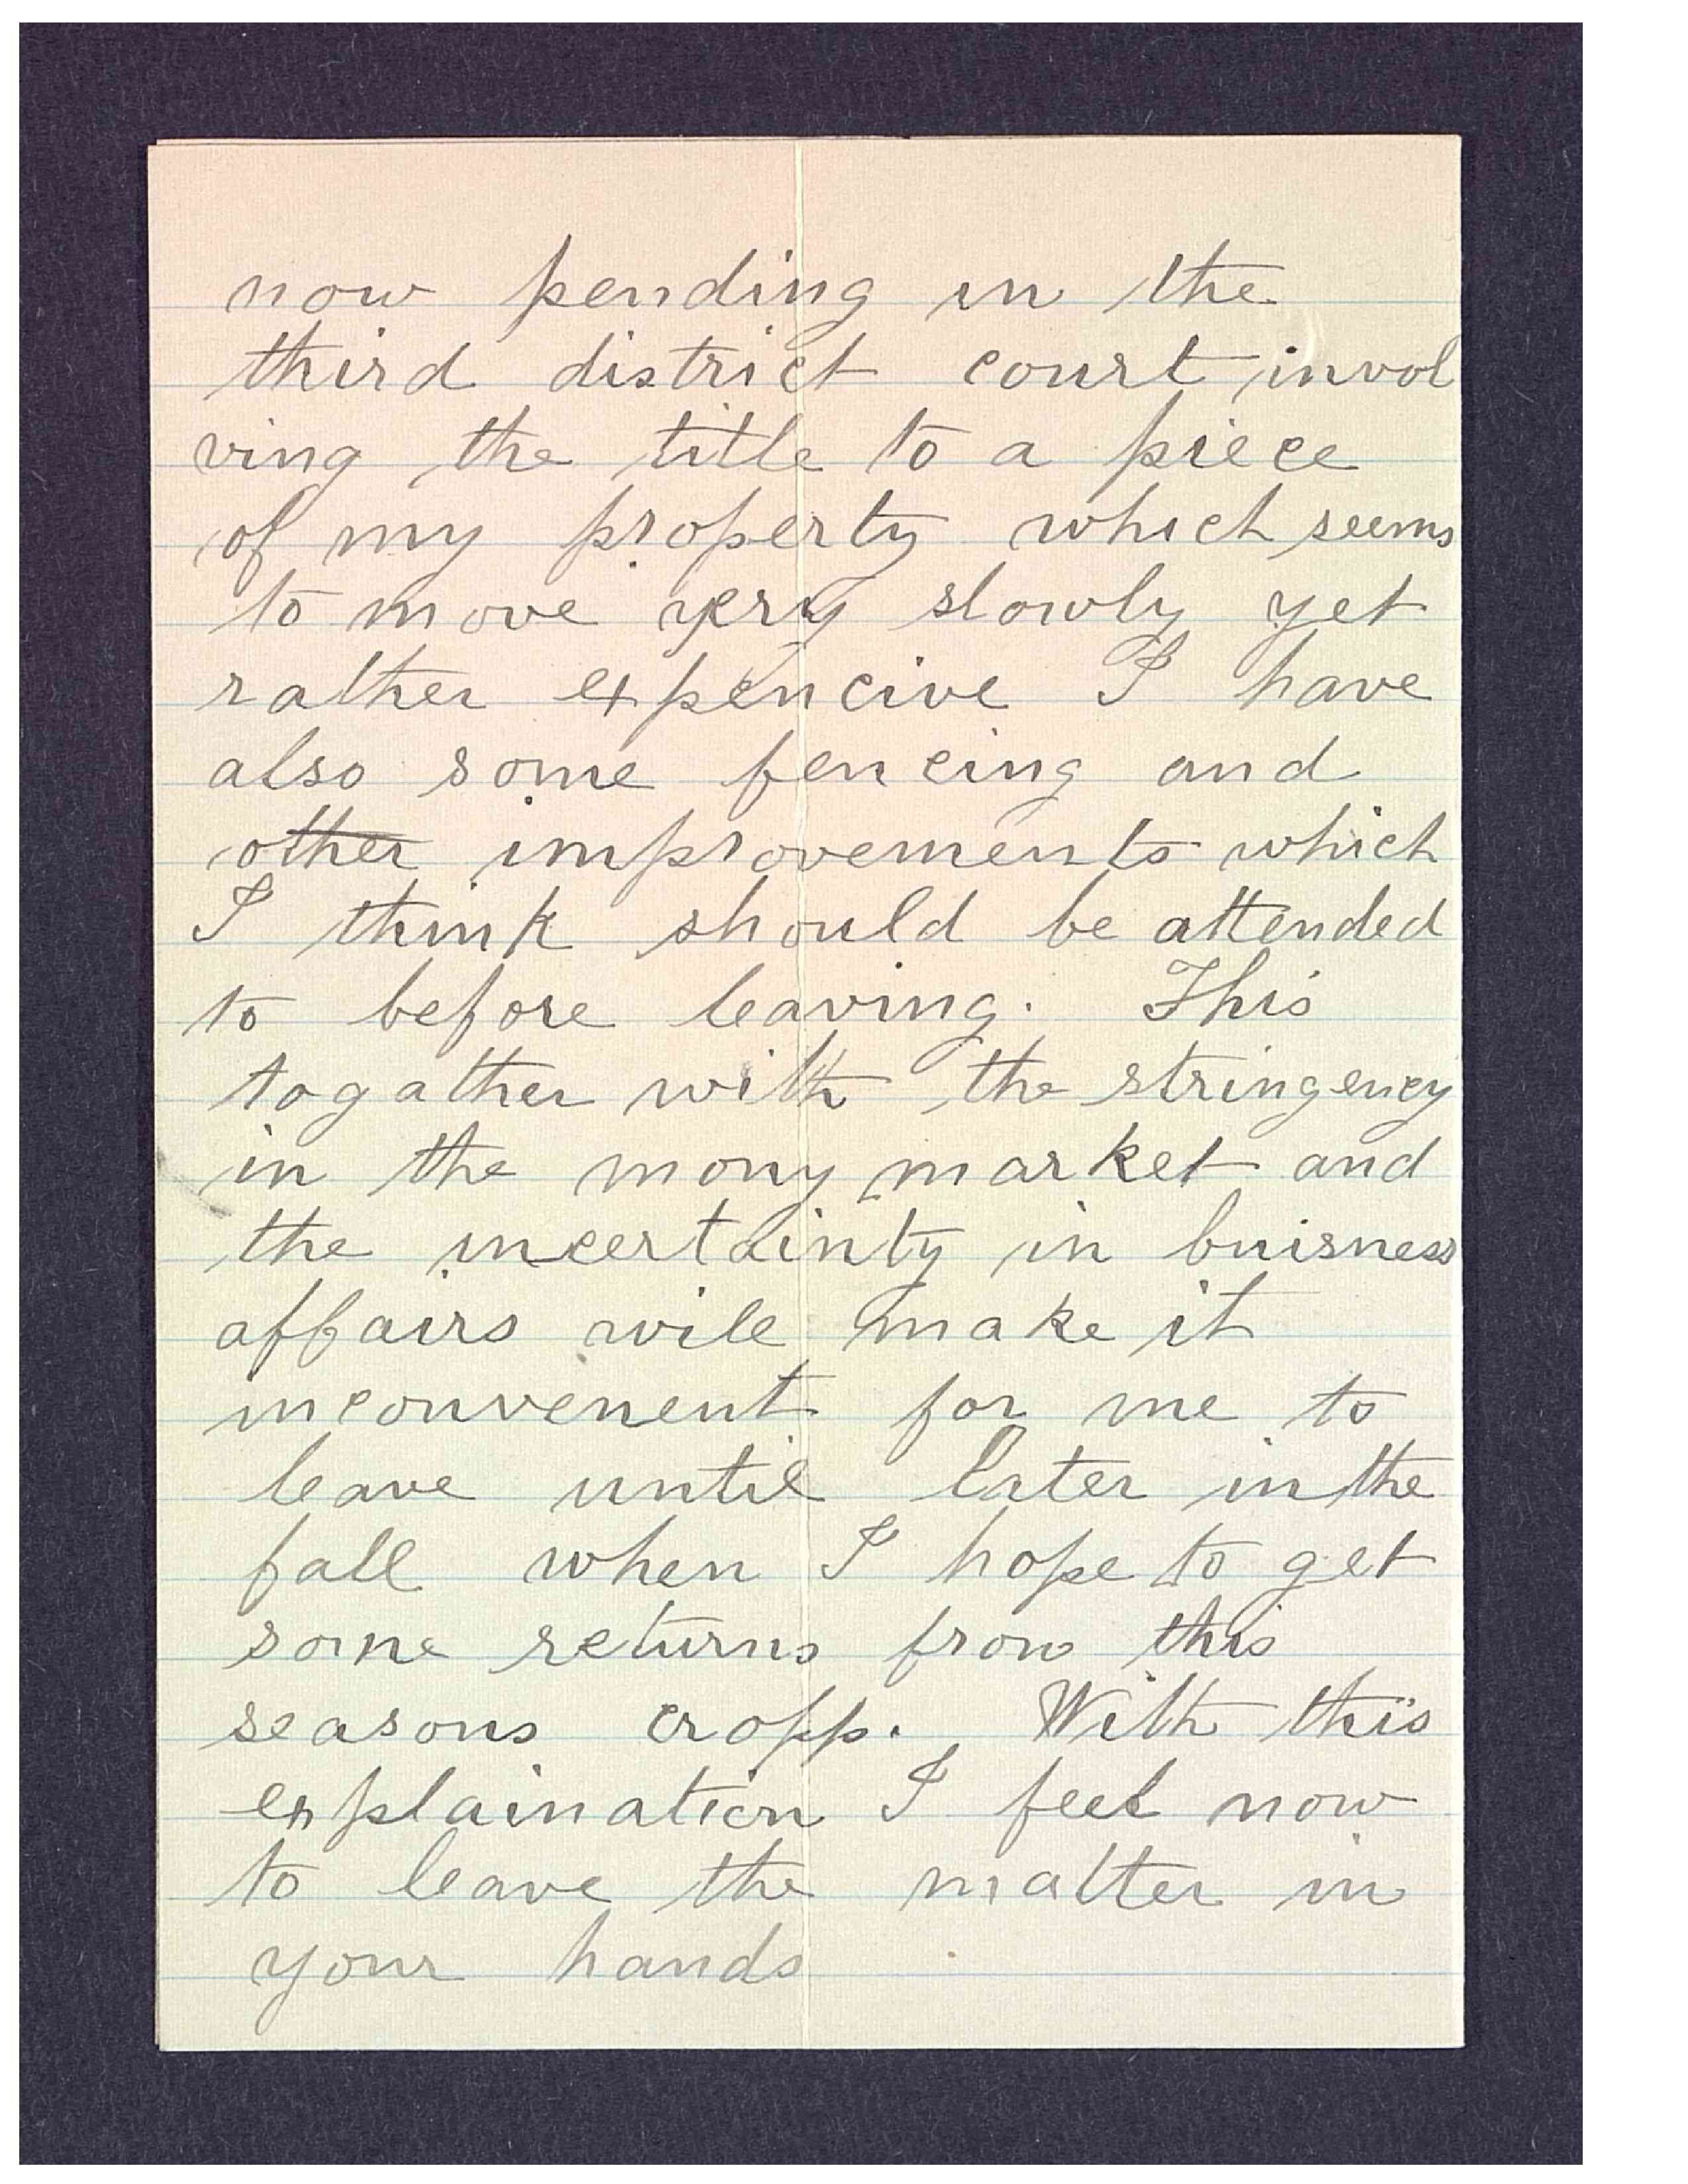 now pending in the
third district court invol
ving the title to a piece
of my property which seems
to move very slowly yet
rather expencive I have
also some fencing and
other improvements which
I think should be attended
to before leaving. This
togather with the stringency
in the mony market and
the incertainty in buisness
affairs will make it
inconvenent for me to
leave until later in the
fall when I hope to get
some returns from this
seasons cropp. With this
explaination I feel now
to leave the matter in
your hands